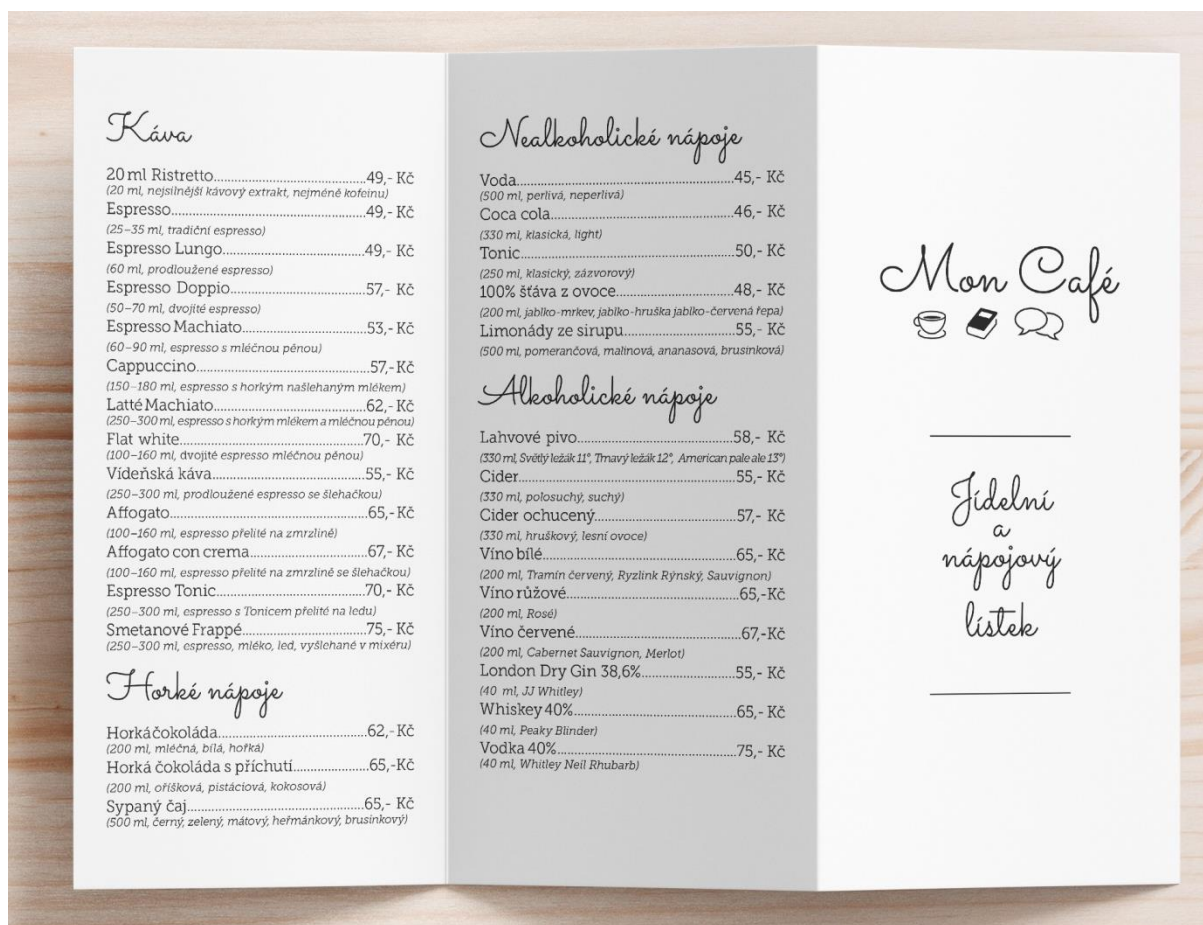 Káva
20 ml Ristretto 49,- Kč
(20 ml, nejsilnější kávový extrakt, nejméně kofeinu)
Espresso 49,- Kč
(25–35 ml, tradiční espresso)
Espresso Lungo 49,- Kč
(60 ml, prodloužené espresso)
Espresso Doppio 57,- Kč
(50–70 ml, dvojité espresso)
Espresso Machiato 53,- Kč
(60–90 ml, espresso s mléčnou pěnou)
Cappuccino 57,- Kč
(150–180 ml, espresso s horkým našlehaným mlékem)
Latté Machiato 62,- Kč
(250–300 ml, espresso s horkým mlékem a mléčnou pěnou)
Flat white 70,- Kč
(100–160 ml, dvojité espresso mléčnou pěnou)
Vídeňská káva 55,- Kč
(250–300 ml, prodloužené espresso se šlehačkou)
Affogato 65,- Kč
(100–160 ml, espresso přelité na zmrzlině)
Affogato con crema 67,- Kč
(100–160 ml, espresso přelité na zmrzlině se šlehačkou)
Espresso Tonic 70,- Kč
(250–300 ml, espresso s Tonicem přelité na ledu)
Smetanové Frappé 75,- Kč
(250–300 ml, espresso, mléko, led, vyšlehané v mixéru)
Horké nápoje
Horkáčokoláda 62,- Kč
(200 ml, mléčná, bílá, hořká)
Horká čokoláda s příchutí 65,-Kč
(200 ml, oříšková, pistáciová, kokosová)
Sypaný čaj 65,- Kč
(500 ml, černý, zelený, mátový, heřmánkový, brusinkový)
Nealkoholické nápoje
Voda 45,- Kč
(500 ml, perlivá, neperlivá)
Coca cola 46,- Kč
(330 ml, klasická, light)
Tonic 50,- Kč
(250 ml, klasický, zázvorový)
100% šťáva z ovoce 48,- Kč
(200 ml, jablko-mrkev, jablko-hruška jablko-červená řepa)
Limonády ze sirupu 55,- Kč
(500 ml, pomerančová, malinová, ananasová, brusinková)
Alkoholické nápoje
Lahvové pivo 58,- Kč
(330 ml, Světlý ležák 11°, Tmavý ležák 12°, American pale ale 13°)
Cider 55,- Kč
(330 ml, polosuchý, suchý)
Cider ochucený 57,- Kč
(330 ml, hruškový, lesní ovoce)
Víno bílé 65,- Kč
(200 ml, Tramín červený, Ryzlink Rýnský, Sauvignon)
Víno růžové 65,-Kč
(200 ml, Rosé)
Víno červené 67,-Kč
(200 ml, Cabernet Sauvignon, Merlot)
London Dry Gin 38,6% 55,- Kč
(40 ml, JJ Whitley)
Whiskey 40% 65,- Kč
(40 ml, Peaky Blinder)
Vodka 40% 75,- Kč
(40 ml, Whitley Neil Rhubarb)
Mon Café
Jídelní
a
nápojový
lístek